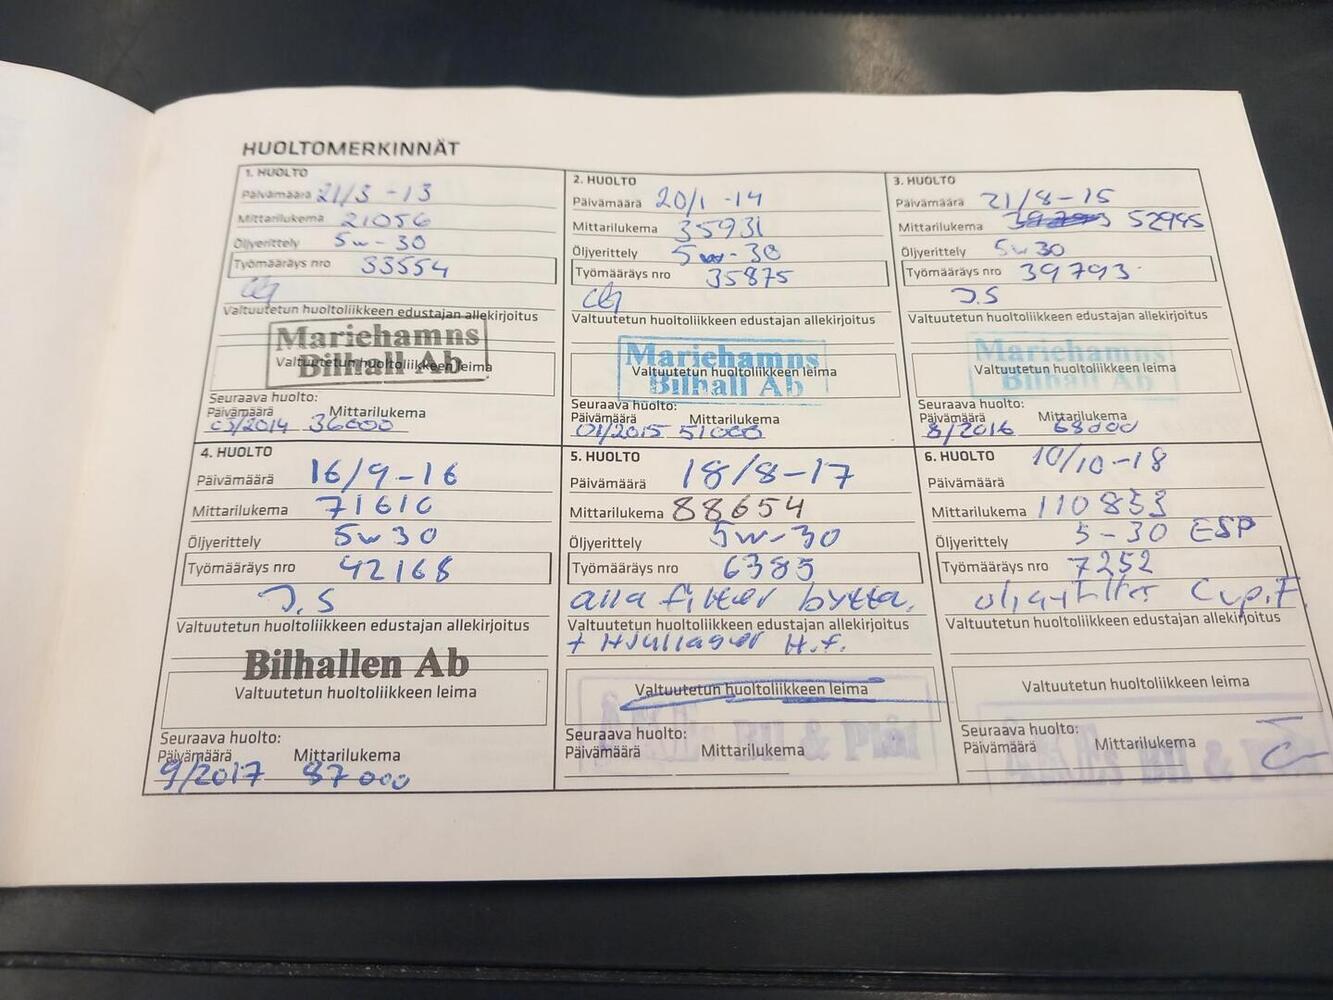 HUOLTOMERKINNÄT
1. HUOLTO
Päivämäärä 21/3 -13
Mittarilukema 21056
Öljyerittely 5w-30
Työmääräys nro 33554
Valtuutetun huoltoliikkeen edustajan allekirjoitus
Mariehamns
Bilhall Ab
Valtuutetun huoltoliikkeen leima
Seuraava huolto:
Päivämäärä Mittarilukema
03/2014 36000
2. HUOLTO
Päivämäärä 20/1 -14
Mittarilukema 35931
Öljyerittely 5w-30
Työmääräys nro 35875
Valtuutetun huoltoliikkeen edustajan allekirjoitus
Mariehamns
Bilhall Ab
Valtuutetun huoltoliikkeen leima
Seuraava huolto:
Päivämäärä Mittarilukema
01/2015 51000
3. HUOLTO
Päivämäärä 21/8-15
Mittarilukema 52945
Öljyerittely 5w30
Työmääräys nro 39793
J.S
Valtuutetun huoltoliikkeen edustajan allekirjoitus
Mariehamns
Bilhall Ab
Valtuutetun huoltoliikkeen leima
Seuraava huolto:
Päivämäärä Mittarilukema
8/2016 68000
4. HUOLTO
Päivämäärä 16/9-16
Mittarilukema 71610
Öljyerittely 5w30
Työmääräys nro 42168
J.S
Valtuutetun huoltoliikkeen edustajan allekirjoitus
Bilhallen Ab
Valtuutetun huoltoliikkeen leima
Seuraava huolto:
Päivämäärä Mittarilukema
9/2017 87000
5. HUOLTO
Päivämäärä 18/8-17
Mittarilukema 88654
Öljyerittely 5w-30
Työmääräys nro 6385
alla filter bytta.
Valtuutetun huoltoliikkeen edustajan allekirjoitus
+ Hjullager H.f.
Valtuutetun huoltoliikkeen leima
Bil & Plåt
Seuraava huolto:
Päivämäärä Mittarilukema
6. HUOLTO
Päivämäärä 10/10-18
Mittarilukema 110853
Öljyerittely 5-30 ESP
Työmääräys nro 7252
Valtuutetun huoltoliikkeen edustajan allekirjoitus
Valtuutetun huoltoliikkeen leima
Seuraava huolto:
Päivämäärä Mittarilukema
Bil &